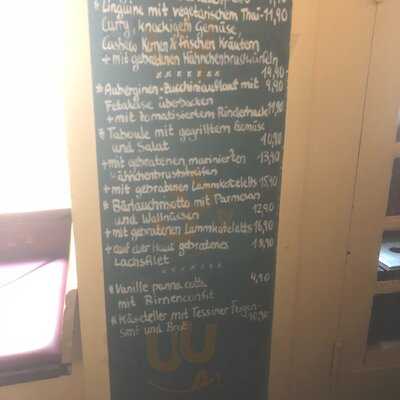 * Linguine mit vegetarischem Thai- 11,90
Curry, knackigem Gemüse,
Cashew Kernen & frischen Kräutern
+ mit gebratenen Hähnchenbrustwürfeln
14,90
x x x x x x x
* Auberginen-Zucchiniauflauf mit 9,90
Fetakäse überbacken
+ mit tomatisiertem Rinderhack 11,90
* Taboulé mit gegrilltem Gemüse
und Salat 10,90
+ mit gebratenen marinierten 13,90
Hähnchenbruststreifen
+ mit gebratenen Lammkoteletts 15,40
* Bärlauchrisotto mit Parmesan
und Wallnüssen 12,90
+ mit gebratenen Lammkoteletts 16,90
+ auf der Haut gebratenes 18,90
Lachsfilet
x x x x x x x
* Vanille panna cotta 4,90
mit Birnenconfit
* Käseteller mit Tessiner Feigen-
senf und Brot 10,90